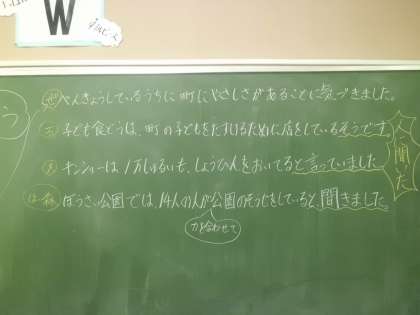 W
べんきょうしているうちに町にやさしさがあることに気づきました。
子ども食どうは、町の子どもをたすけるために店をしているそうです。
人に聞いた
は1万しゅるい も、しょうひんをおいてると言っていました
ぼうさい公園では、14人の人が公園のそうじをしていると聞きました。
力を合わせて